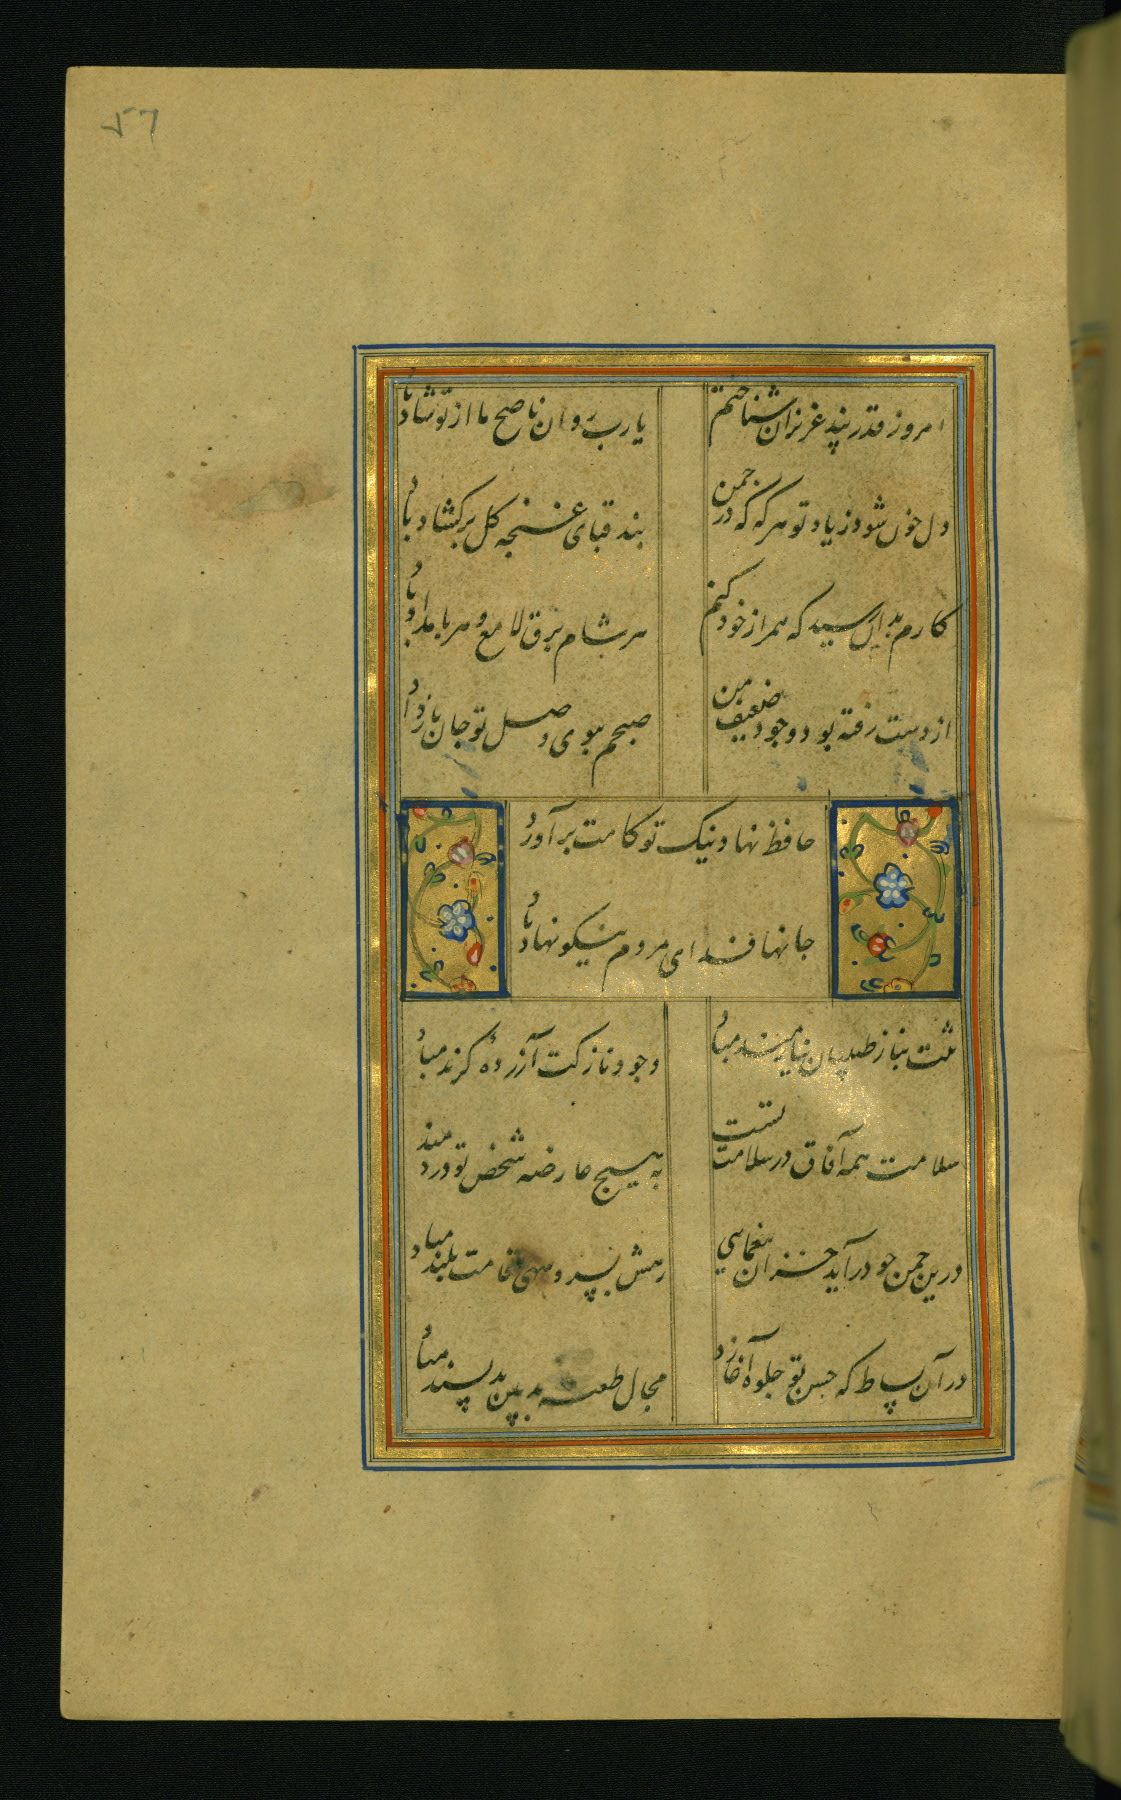 ۵۶
امروز قدر پند عزیزان شناختم
یارب روان ناصح ما از تو شاد باد
دل خون شود ز یاد تو هر که که در چمن
بند قبای غنچه کل برکشاد باد
کارم بدان رسید که همراز خود کنم
هر شام برق لامع و هر بامداد باد
از دست رفته بود وجود ضعیف من
صبحم ببوی وصل تو جان باز داد
حافظ نهاد نیک تو کامت برآورد
جانها فدای مردم نیکو نهاد باد
تنت بناز طبیبان نیازمند مباد
وجود نازکت آزرده کزند مباد
سلامت همه آفاق در سلامت تست
به هیچ عارضه شخص تو دردمند
درین چمن چو درآید خزان یغمایی
رهش بسرو سهی قامت بلند مباد
در آن بساط که حسن تو جلوه آغازد
مجال طعنه بدبین بدپسند مباد